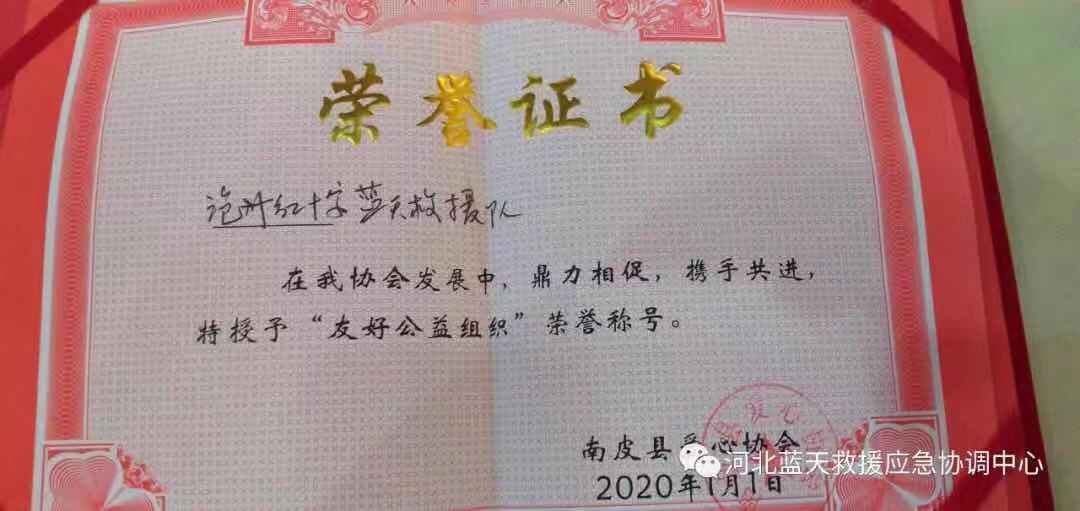 荣誉证书
沧州红十字蓝天救援队
在我协会发展中，鼎力相促，携手共进，
特授予“友好公益组织”荣誉称号。
南皮县爱心协会
2020年1月1日
河北蓝天救援应急协调中心